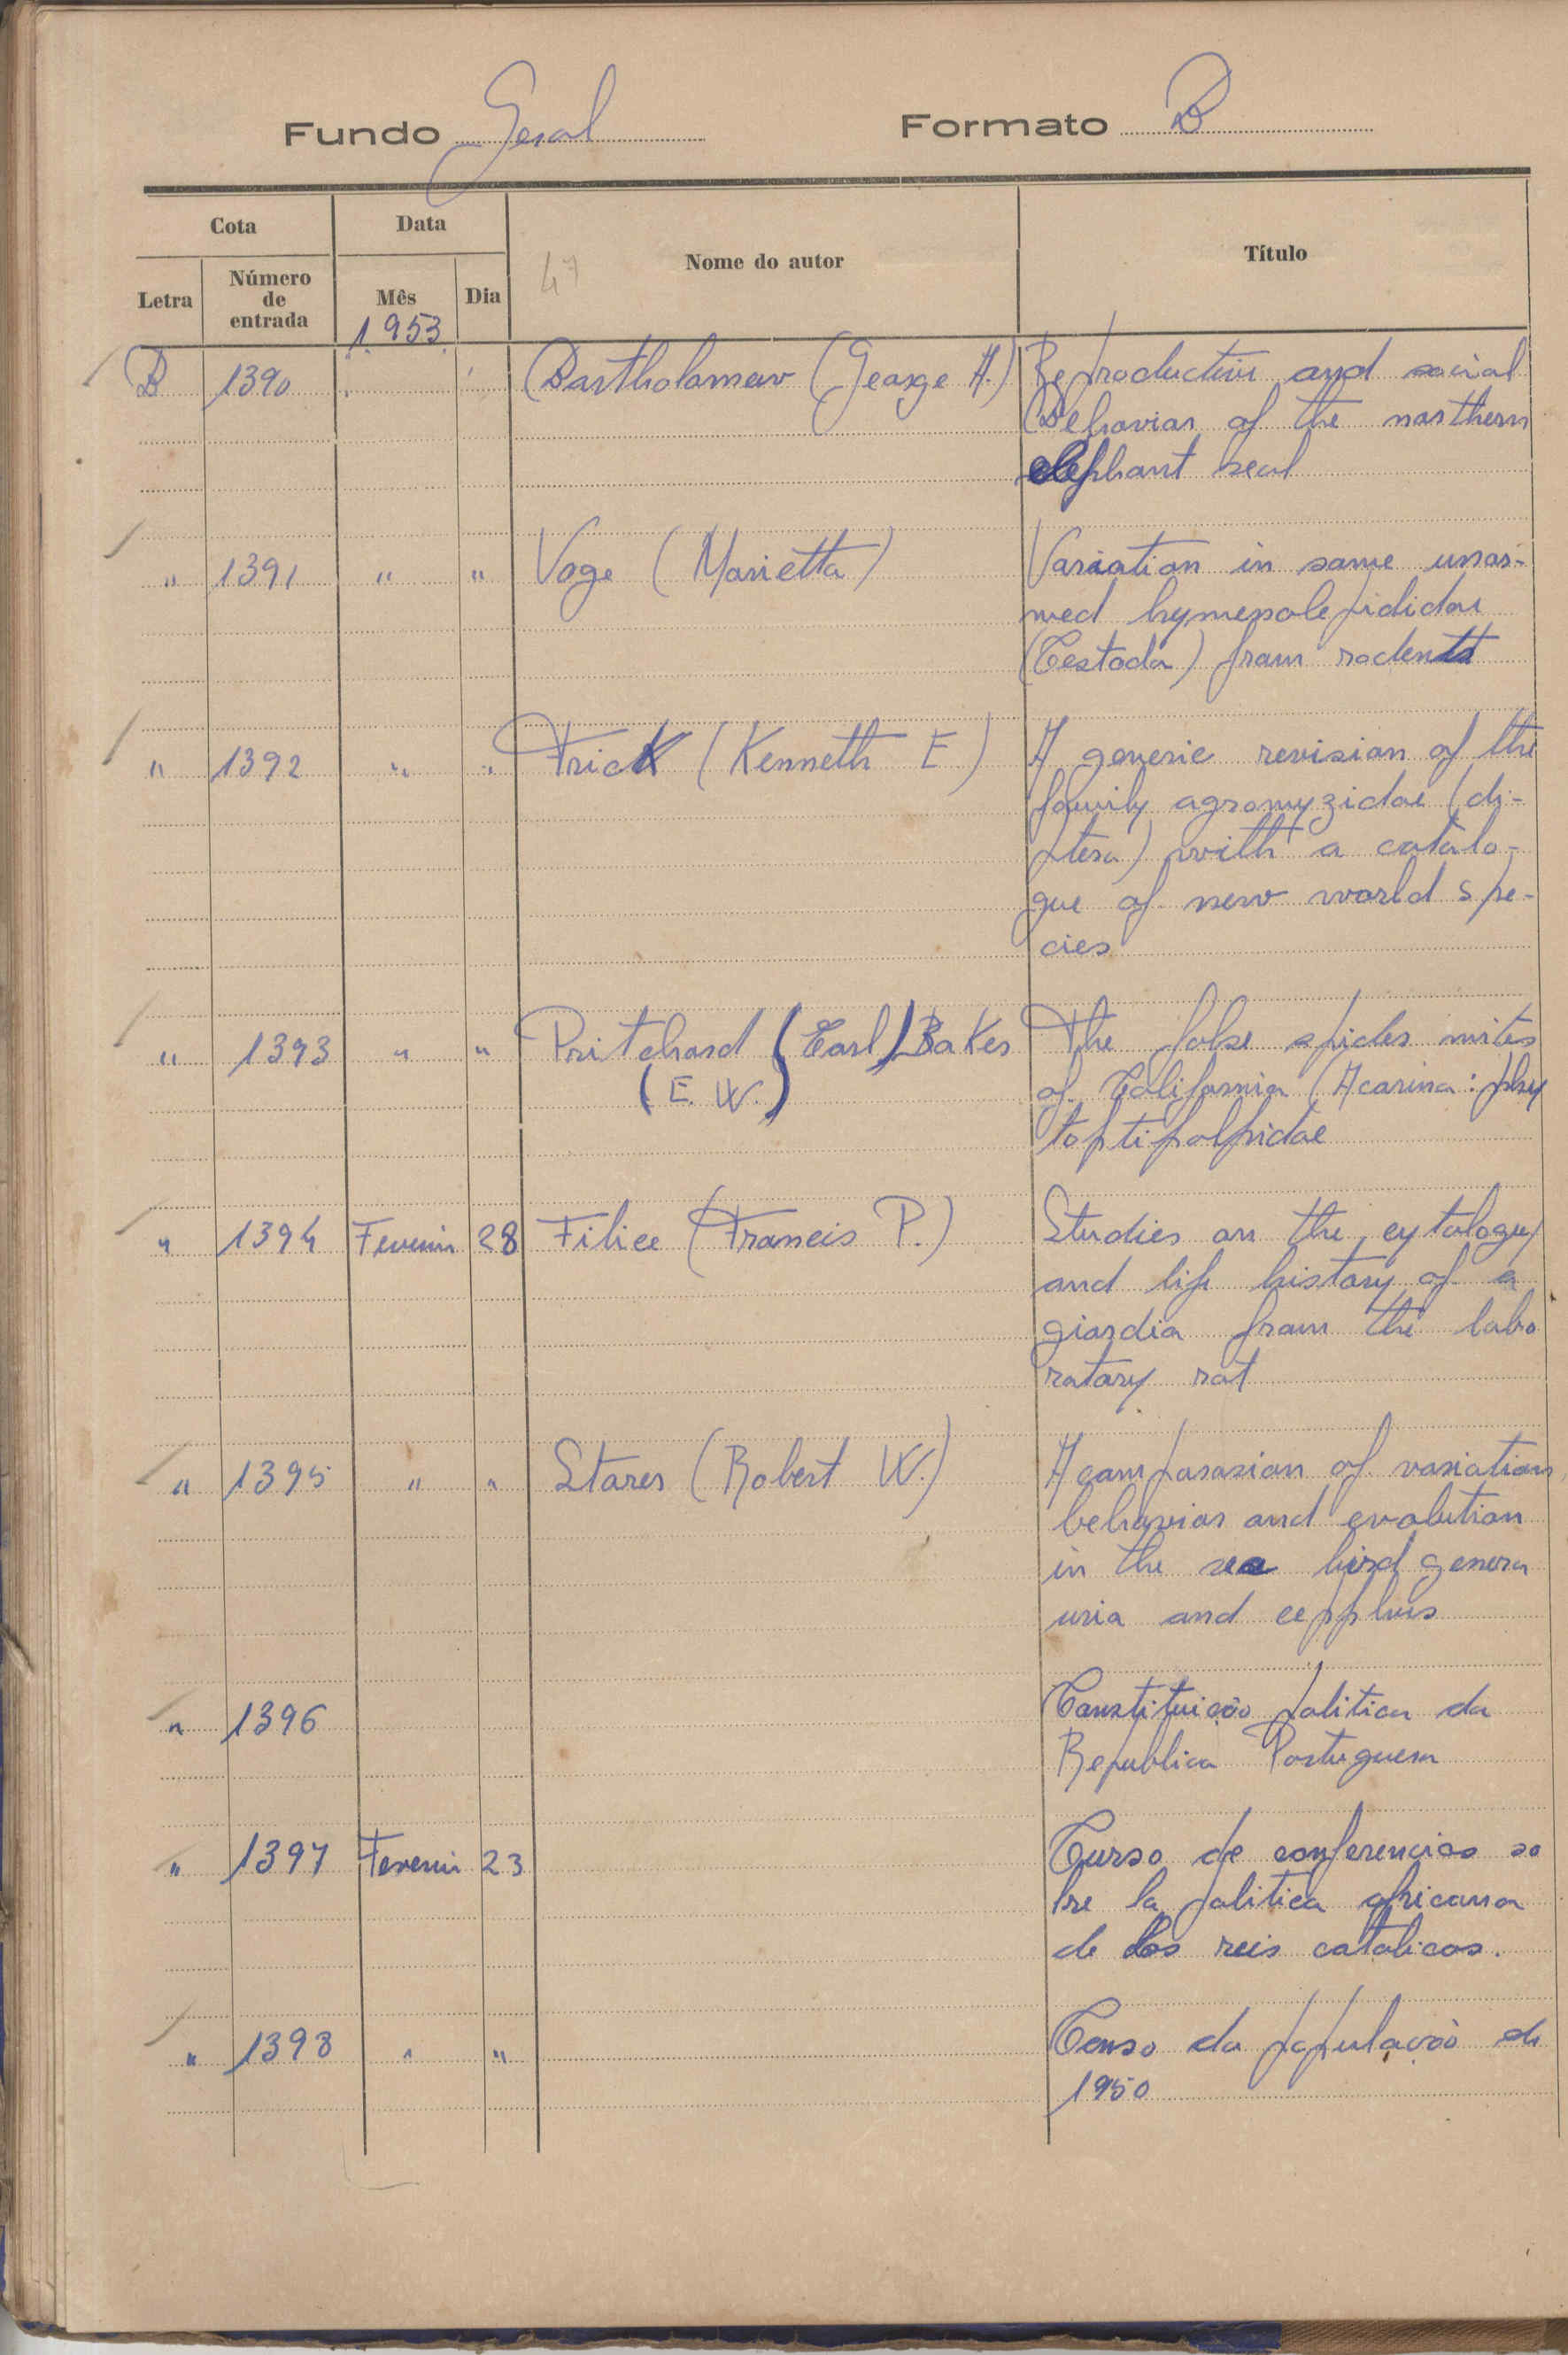 Fundo Geral Formato B
Cota Data Nome do autor Título
47
Letra Número de entrada Mês Dia
1953
B 1390 Bartholomew (George A.) Reproductive and social
Behavior of the northern
elephant seal
" 1391 " " Voge (Marietta) Variation in some unar-
med hymenolepididae
(Cestoda) from rodents
" 1392 " " Frick (Kenneth E.) A generic revision of the
family agromyzidae (di-
ptera) with a catalo-
gue of new world spe-
cies
" 1393 " " Pritchard (Earl) Baker The false spider mites
(E. W.) of California (Acarina: phy
toptipalpidae
" 1394 Fevereiro 28 Filice (Francis P.) Studies on the cytology
and life history of a
giardia from the labo
ratory rat
" 1395 " " Storer (Robert W.) A comparasion of variation
behavior and evolution
in the sea bird genera
uria and cepphus
" 1396 Constituição politica da
Republica Portuguesa
" 1397 Fevereiro 23 Curso de conferencias so
bre la politica africana
de los reis catolicos.
" 1398 " " Censo da população de
1950